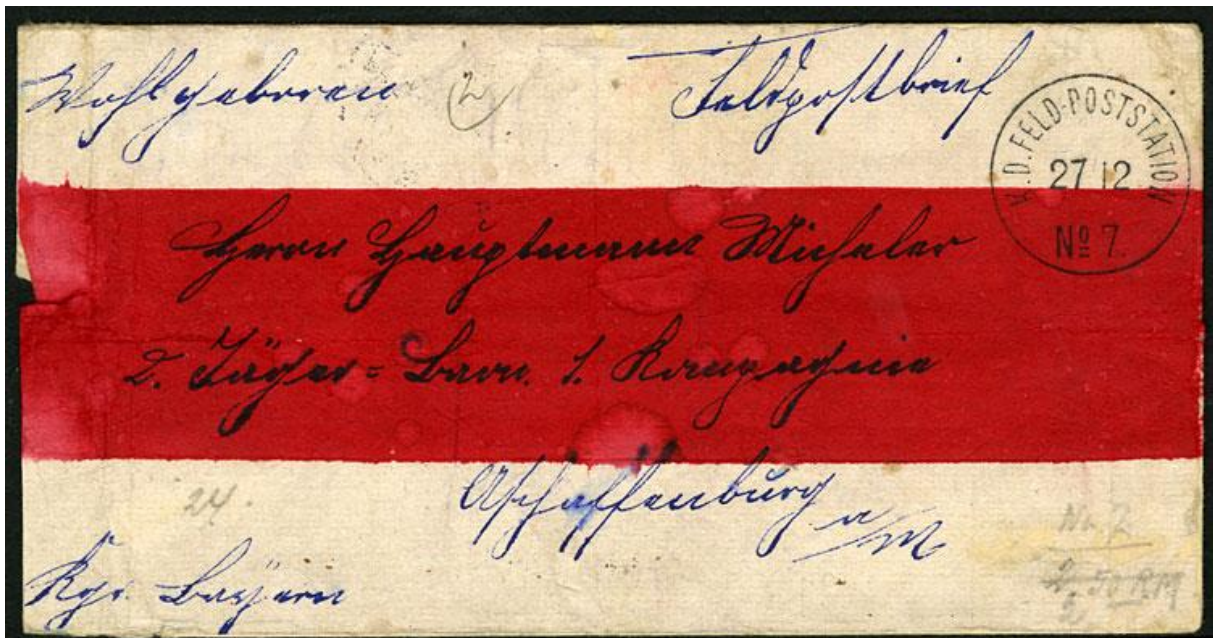 Wohlgeboren
(2)
Feldpostbrief
K.D. FELD-POSTSTATION
27 12
Nº 7.
Herrn Hauptmann Micheler
2. Jäger = Baon. 1. Kompagnie
Aschaffenburg
a/M
24.
Kgr. Bayern
No 7
2.50 RM